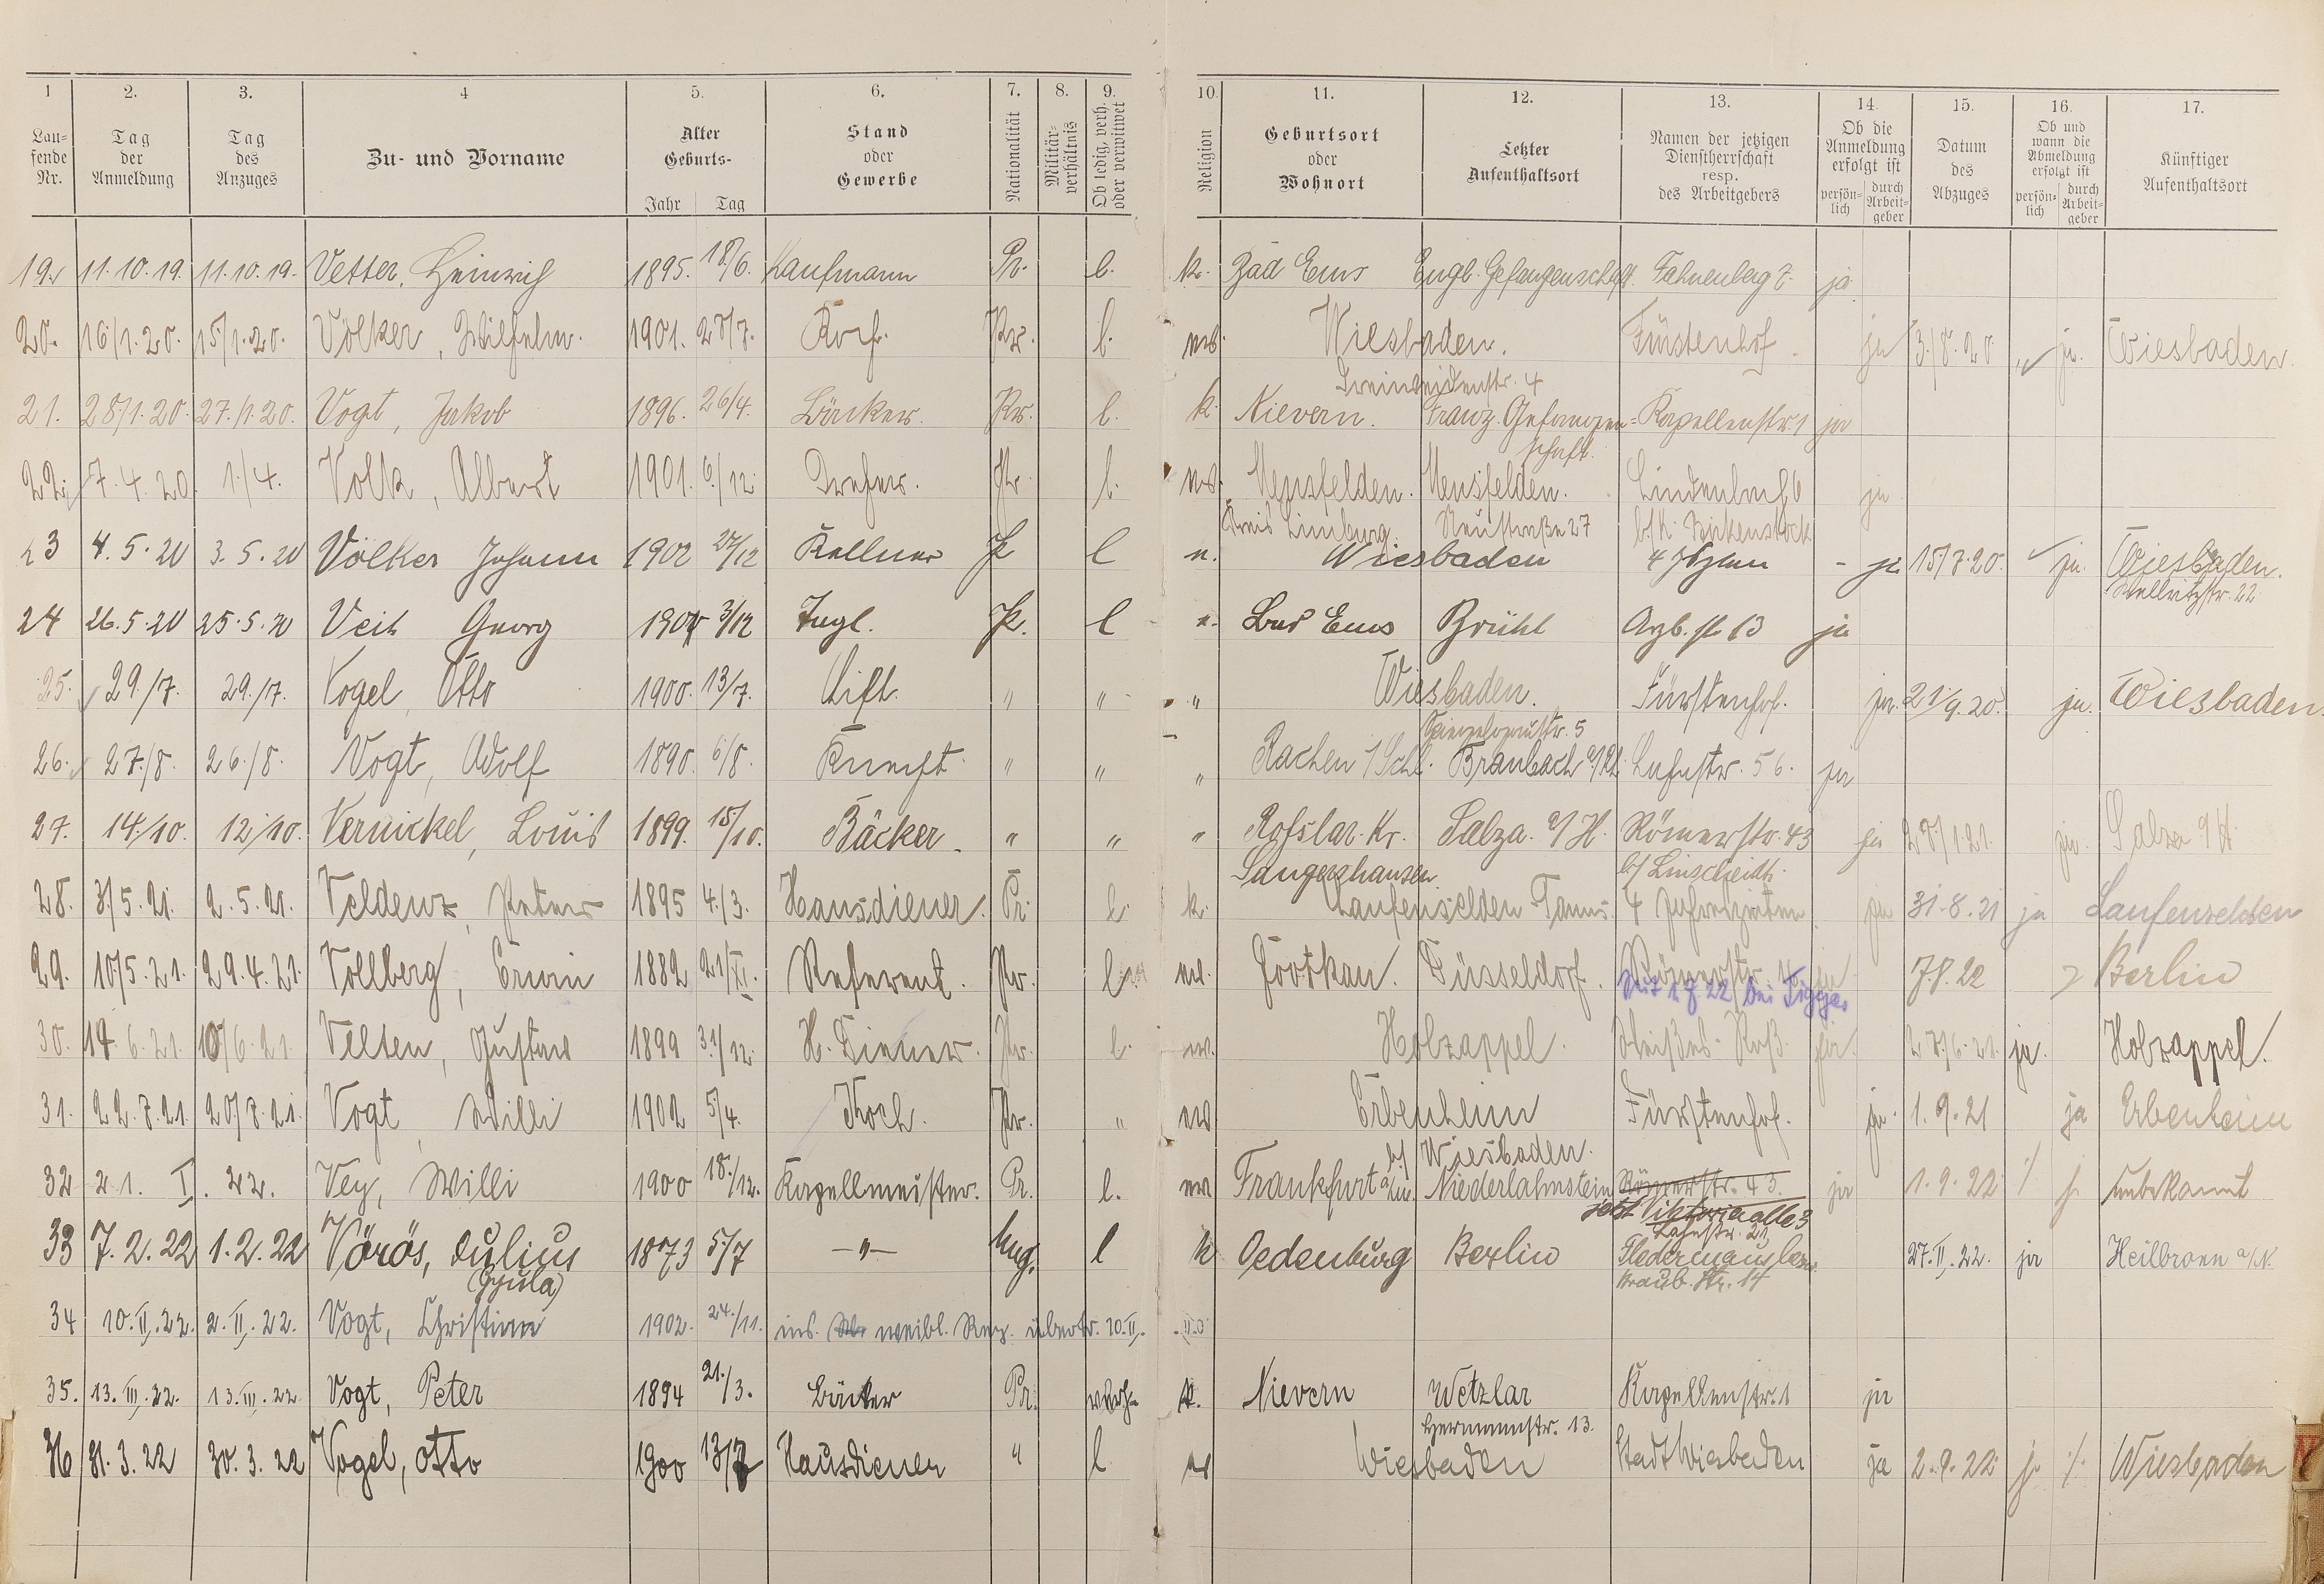 1 2. 3. 4 5. 6. 7. 8. 9. 10. 11. 12. 13. 14. 15. 16. 17.
Lau-
fende
Nr.
Tag
der
Anmeldung
Tag
des
Anzuges
Zu- und Vorname
Alter
Geburts-
Jahr Tag
Stand
oder
Gewerbe
Nationalität
Militär-
verhältnis
Ob ledig, verh.
oder verwitwet
Religion
Geburtsort
oder
Wohnort
Letzter
Aufenthaltsort
Namen der jetzigen
Dienstherrschaft
resp.
des Arbeitgebers
Ob die
Anmeldung
erfolgt ist
persön-
lich
durch
Arbeit-
geber
Datum
des
Abzuges
Ob und
wann die
Abmeldung
erfolgt ist
persön-
lich
durch
Arbeit-
geber
Künftiger
Aufenthaltsort
19. 11.10.19. 11.10.19. Vetter, Heinrich 1895. 18/6. Kaufmann Pr. l. k. Bad Ems Engl. Gefangenschaft. Fahnenberg 7. ja
20. 16/1.20. 15/1.20. Völker, Wilhelm. 1901. 28/7. Koch. Pr. l. Wiesbaden. Fürstenhof. ja 3./8.20 ja. Wiesbaden.
21. 28/1.20. 27./1.20. Vogt, Jakob 1896. 26/4. Bäcker. Pr. l. k. Nievern. Franz. Gefangen- Kapellenstr. 1 ja
schaft.
22. 7.4.20. 1./4. Volk, Albert 1901. 6./12. Dreher. Pr. l. Mensfelden. Mensfelden. Lindenbach 6 ja
Kreis Limburg. Neustraße 27 b/K. Birkenstock
23 4.5.20 3.5.20 Völker Johann 1902 27/12 Kellner P. l Wiesbaden ja 15/7.20. ja. Wiesbaden.
Wellritzstr. 22
24 26.5.20 25.5.20 Veit Georg 3/12 P. l Bad Ems Brühl ja
25. 29./7. 29./7. Vogel, Otto 1900. 13/7. Lift. " " " Wiesbaden. Fürstenhof. ja. 21/9.20. ja. Wiesbaden.
26. 27./8. 26./8. Vogt, Adolf 1890. 6/8. Knecht " " " Braubach a/Rh. 56. ja
27. 14./10. 12/10. Vernickel, Louis 1899. 15/10. Bäcker. " " " Roßlar. Kr. Salza. a/H. Römerstr. 43 ja ja. Salza a/H.
Sangerhausen. b/ Linscheidt.
28. 3/5.21. 2.5.21. Veldenz, Peter 1895 4./3. Hausdiener. Pr. l. k. Laufenselden Taunus. 4 Jahreszeiten ja 31.8.21 ja Laufenselden
29. 10/5.21. 29.4.21. Vollberg, Erwin 1882 21/XI. Referent. Pr. l Düsseldorf. Römerstr. 7.8.22 Berlin
30. 14.6.21. 10/6.21. Velten, Gustav 1899 31/12. H. Diener. Pr. l. Holzappel. Weißes Roß. ja. 27./6.21. ja. Holzappel.
31. 22.7.21. 20/7.21. Vogt, Willi 1902 5/4. Koch. Pr. " Erbenheim Fürstenhof. ja. 1.9.21 ja Erbenheim
b/ Wiesbaden.
32 21. I. 22. Vey, Willi 1900 18./12. Kapellmeister. Pr. l. Frankfurt a/M. Niederlahnstein Römerstr. 43. ja 1.9.22 unbekannt
jetzt Viktoriaallee 3
33 7.2.22 1.2.22 Vörös, Julius 1873 5/7 —"— Ung. l k Oedenburg Berlin 27.II.22. ja Heilbronn a/N.
(Gyula) Graub. Str. 14
34 10.II.22. 2.II.22. Vogt, Christine 1902. 24./11. ins weibl. Reg. übertr. 20.II.
35. 13.III.22. 13.III.22. Vogt, Peter 1894 21./3. Bäcker Pr. verh. k. Nievern Wetzlar Kapellenstr. 1 ja
Hermannstr. 13.
36 31.3.22 30.3.22 Vogel, Otto 1900 13/7 Hausdiener " l Wiesbaden Stadt Wiesbaden ja 2.9.22 Wiesbaden